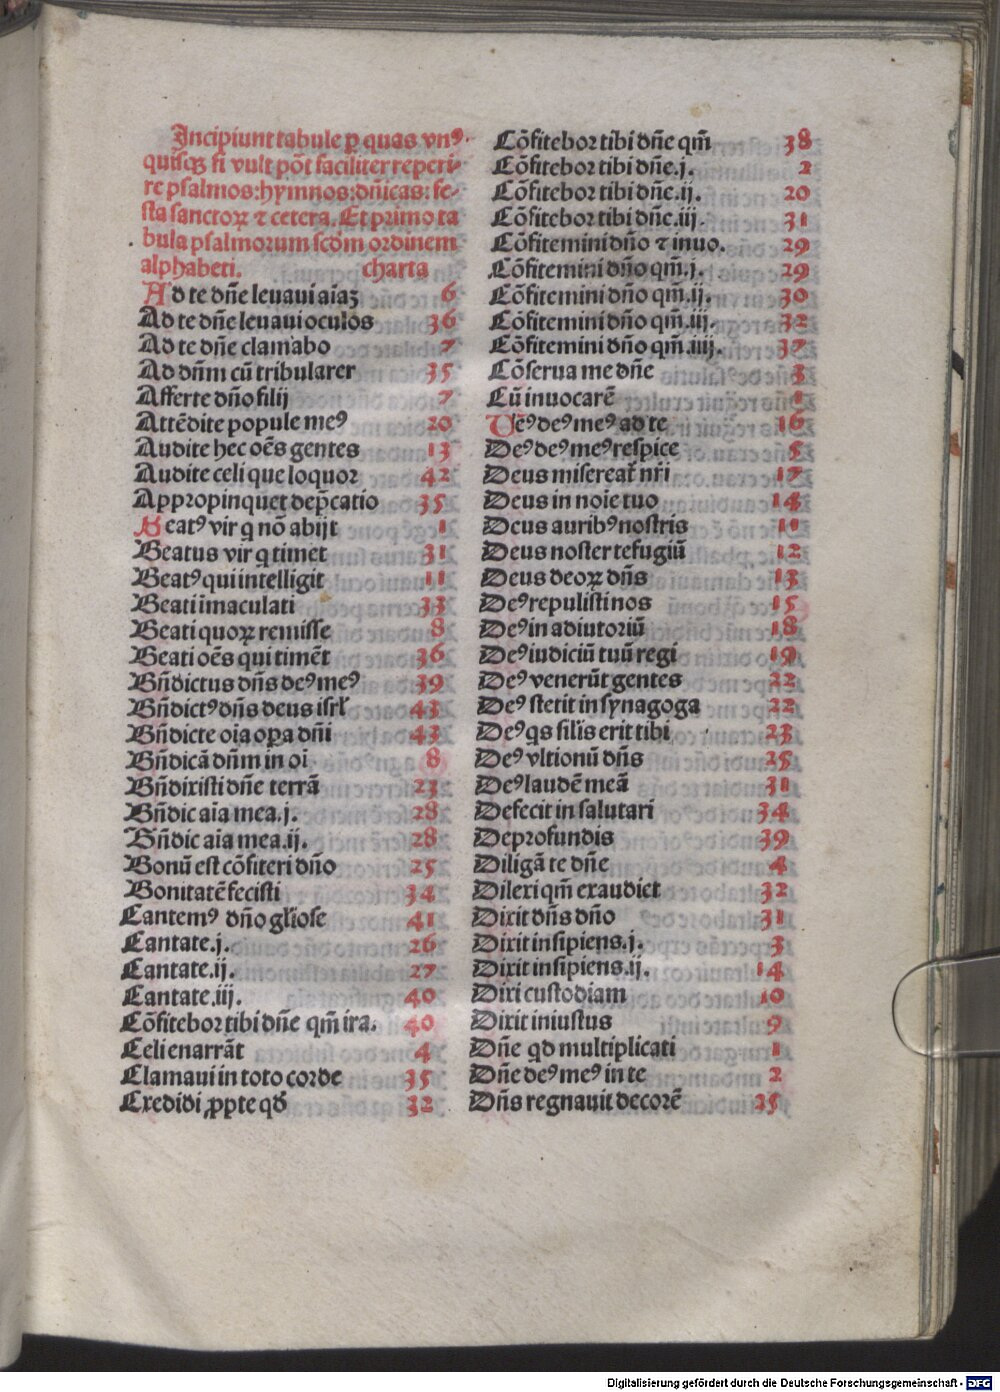 Incipiunt tabule ꝑ quas vnꝰ
quisqꝫ si vult põt faciliter reperi⸗
re psalmos: hymnos: dñicas: fe⸗
sta sanctoꝝ ⁊ cetera. Et primo ta
bula psalmorum scḋm ordinem
alphabeti. charta
Ad te dñe leuaui aiãꝫ 6
Ad te dñe leuaui oculos 36
Ad te dñe clamabo 7
Ad dñm cũ tribularer 35
Afferte dño filij 7
Attẽdite popule meꝰ 20
Audite hec oẽs gentes 13
Audite celi que loquor 42
Appropinquet dep̃catio 35
Beatꝰ vir q nõ abijt 1
Beatus vir q timet 31
Beatꝰ qui intelligit 11
Beati ĩmaculati 33
Beati quoꝝ remisse 8
Beati oẽs qui timẽt 36
Bñdictus dñs deꝰ meꝰ 39
Bñdictꝰ dñs deus isrl̃ 43
Bñdicte oĩa oꝑa dñi 43
Bñdicã dñm in oĩ 8
Bñdixisti dñe terrã 23
Bñdic aĩa mea.j. 28
Bñdic aĩa mea.ij. 28
Bonũ est cõfiteri dño 25
Bonitatẽ fecisti 34
Cantemꝰ dño gl̃iose 41
Cantate.j. 26
Cantate.ij. 27
Cantate.iij. 40
Cõfitebor tibi dñe qm̃ ira. 40
Celi enarrãt 4
Clamaui in toto corde 35
Credidi ꝓpte qḋ 32
Cõfitebor tibi dñe qm̃ 38
Cõfitebor tibi dñe.j. 2
Cõfitebor tibi dñe.ij. 20
Cõfitebor tibi dñe.iij. 31
Cõfitemini dño ⁊ inuo. 29
Cõfitemini dño qm̃.j. 29
Cõfitemini dño qm̃.ij. 30
Cõfitemini dño qm̃.iij. 32
Cõfitemini dño qm̃.iiij. 37
Cõserua me dñe 3
Cũ inuocarẽ 1
Deꝰ deꝰ meꝰ ad te 16
Deꝰ deꝰ meꝰ respice 5
Deus misereat̃ nr̃i 17
Deus in noĩe tuo 14
Deus auribꝰ nostris 11
Deus noster refugiũ 12
Deus deoꝝ dñs 13
Deꝰ repulisti nos 15
Deꝰ in adiutoriũ 18
Deꝰ iudiciũ tuũ regi 19
Deꝰ venerũt gentes 22
Deꝰ stetit in synagoga 22
Deꝰ qs silĩs erit tibi 23
Deꝰ vltionũ dñs 25
Deꝰ laudẽ meã 31
Defecit in salutari 34
De profundis 39
Diligã te dñe 4
Dilexi qm̃ exaudiet 32
Dixit dñs dño 31
Dixit insipiens.j. 3
Dixit insipiens.ij. 14
Dixi custodiam 10
Dixit iniustus 9
Dñe qd multiplicati 1
Dñe deꝰ meꝰ in te 2
Dñs regnauit decorẽ 25
Digitalisierung gefördert durch die Deutsche Forschungsgemeinschaft - DFG